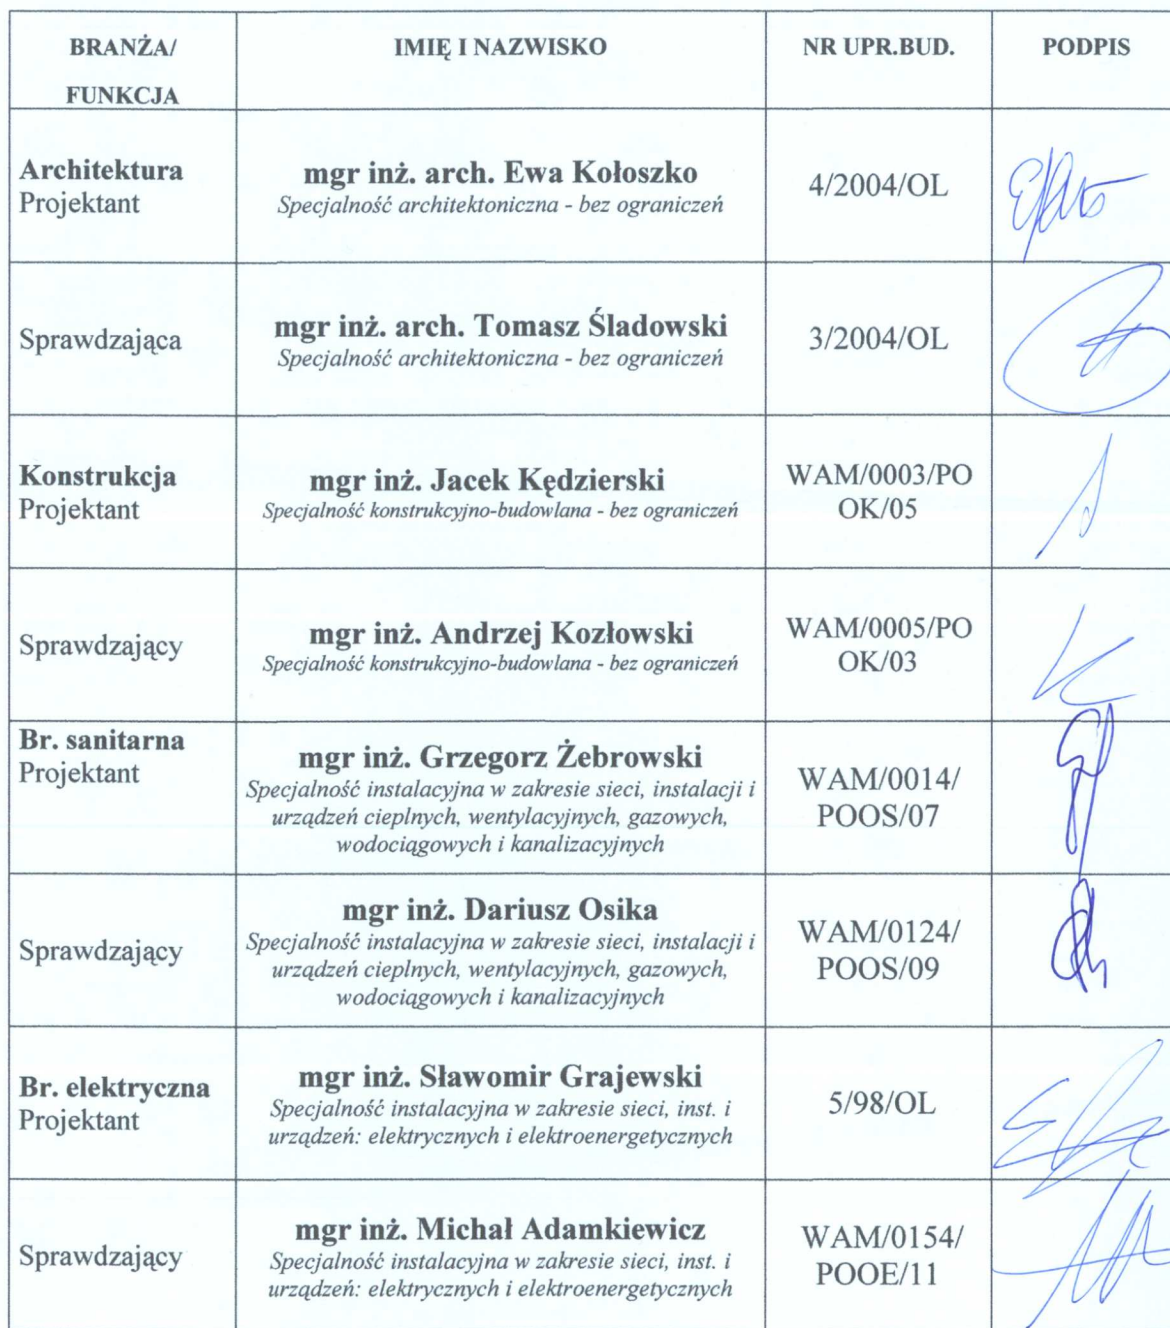 BRANŻA/
FUNKCJA
IMIĘ I NAZWISKO
NR UPR.BUD.
PODPIS
Architektura
Projektant
mgr inż. arch. Ewa Kołoszko
Specjalność architektoniczna - bez ograniczeń
4/2004/OL
Sprawdzająca
mgr inż. arch. Tomasz Śladowski
Specjalność architektoniczna - bez ograniczeń
3/2004/OL
Konstrukcja
Projektant
mgr inż. Jacek Kędzierski
Specjalność konstrukcyjno-budowlana - bez ograniczeń
WAM/0003/PO
OK/05
Sprawdzający
mgr inż. Andrzej Kozłowski
Specjalność konstrukcyjno-budowlana - bez ograniczeń
WAM/0005/PO
OK/03
Br. sanitarna
Projektant
mgr inż. Grzegorz Żebrowski
Specjalność instalacyjna w zakresie sieci, instalacji i
urządzeń cieplnych, wentylacyjnych, gazowych,
wodociągowych i kanalizacyjnych
WAM/0014/
POOS/07
Sprawdzający
mgr inż. Dariusz Osika
Specjalność instalacyjna w zakresie sieci, instalacji i
urządzeń cieplnych, wentylacyjnych, gazowych,
wodociągowych i kanalizacyjnych
WAM/0124/
POOS/09
Br. elektryczna
Projektant
mgr inż. Sławomir Grajewski
Specjalność instalacyjna w zakresie sieci, inst. i
urządzeń: elektrycznych i elektroenergetycznych
5/98/OL
Sprawdzający
mgr inż. Michał Adamkiewicz
Specjalność instalacyjna w zakresie sieci, inst. i
urządzeń: elektrycznych i elektroenergetycznych
WAM/0154/
POOE/11